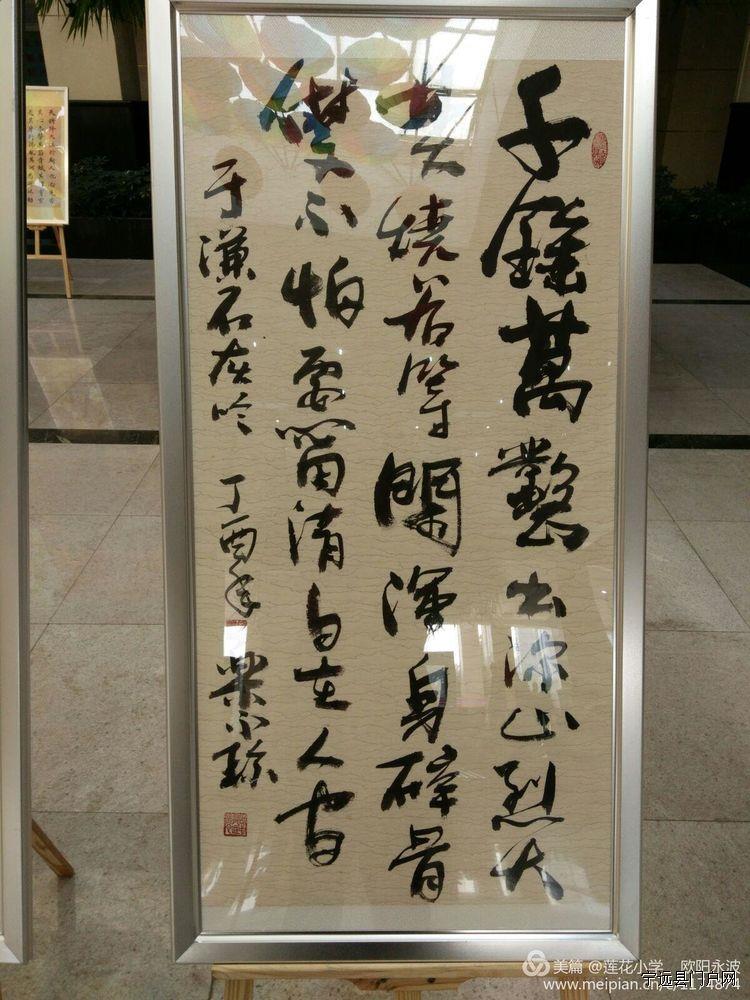 千鎚萬鑿出深山烈火
焚燒若等閑渾身碎骨
不怕要留清白在人间
于謙石灰吟 丁酉年
美篇 @莲花小学 欧阳永波
www.meipian.cn
宁远县门户网